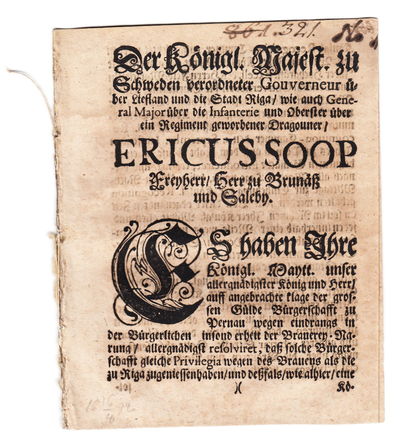 321.
No
Der Königl. Majest. zu
Schweden verordneter Gouverneur ü-
ber Liefland und die Stadt Riga / wie auch Gene-
ral Major über die Infanterie und Oberster über
ein Regiment geworbener Dragouner /
ERICUS SOOP
Freyherr / Herr zu Brunäß
und Saleby.
ES haben Ihre
Königl. Maytt. unser
allergnädigster König und Herr /
auff angebrachte klage der gros-
sen Gülde Bürgerschafft zu
Pernau wegen eindrangs in
der Bürgerlichen insond erheit der Brauerey-Na-
rung / allergnädigst resolviret, daß solche Bürger-
schafft gleiche Privilegia wegen des Brauens als die
zu Riga zugeniessen haben / und deßfals / wie alhier / eine
)( Kö-